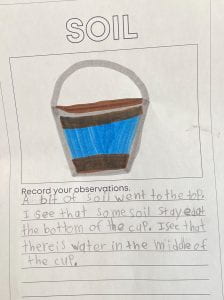 SOIL
Record your observations.
A bit of soil went to the top.
I see that some soil stayed at
the bottom of the cup. I see that
there is water in the middle of
the cup.